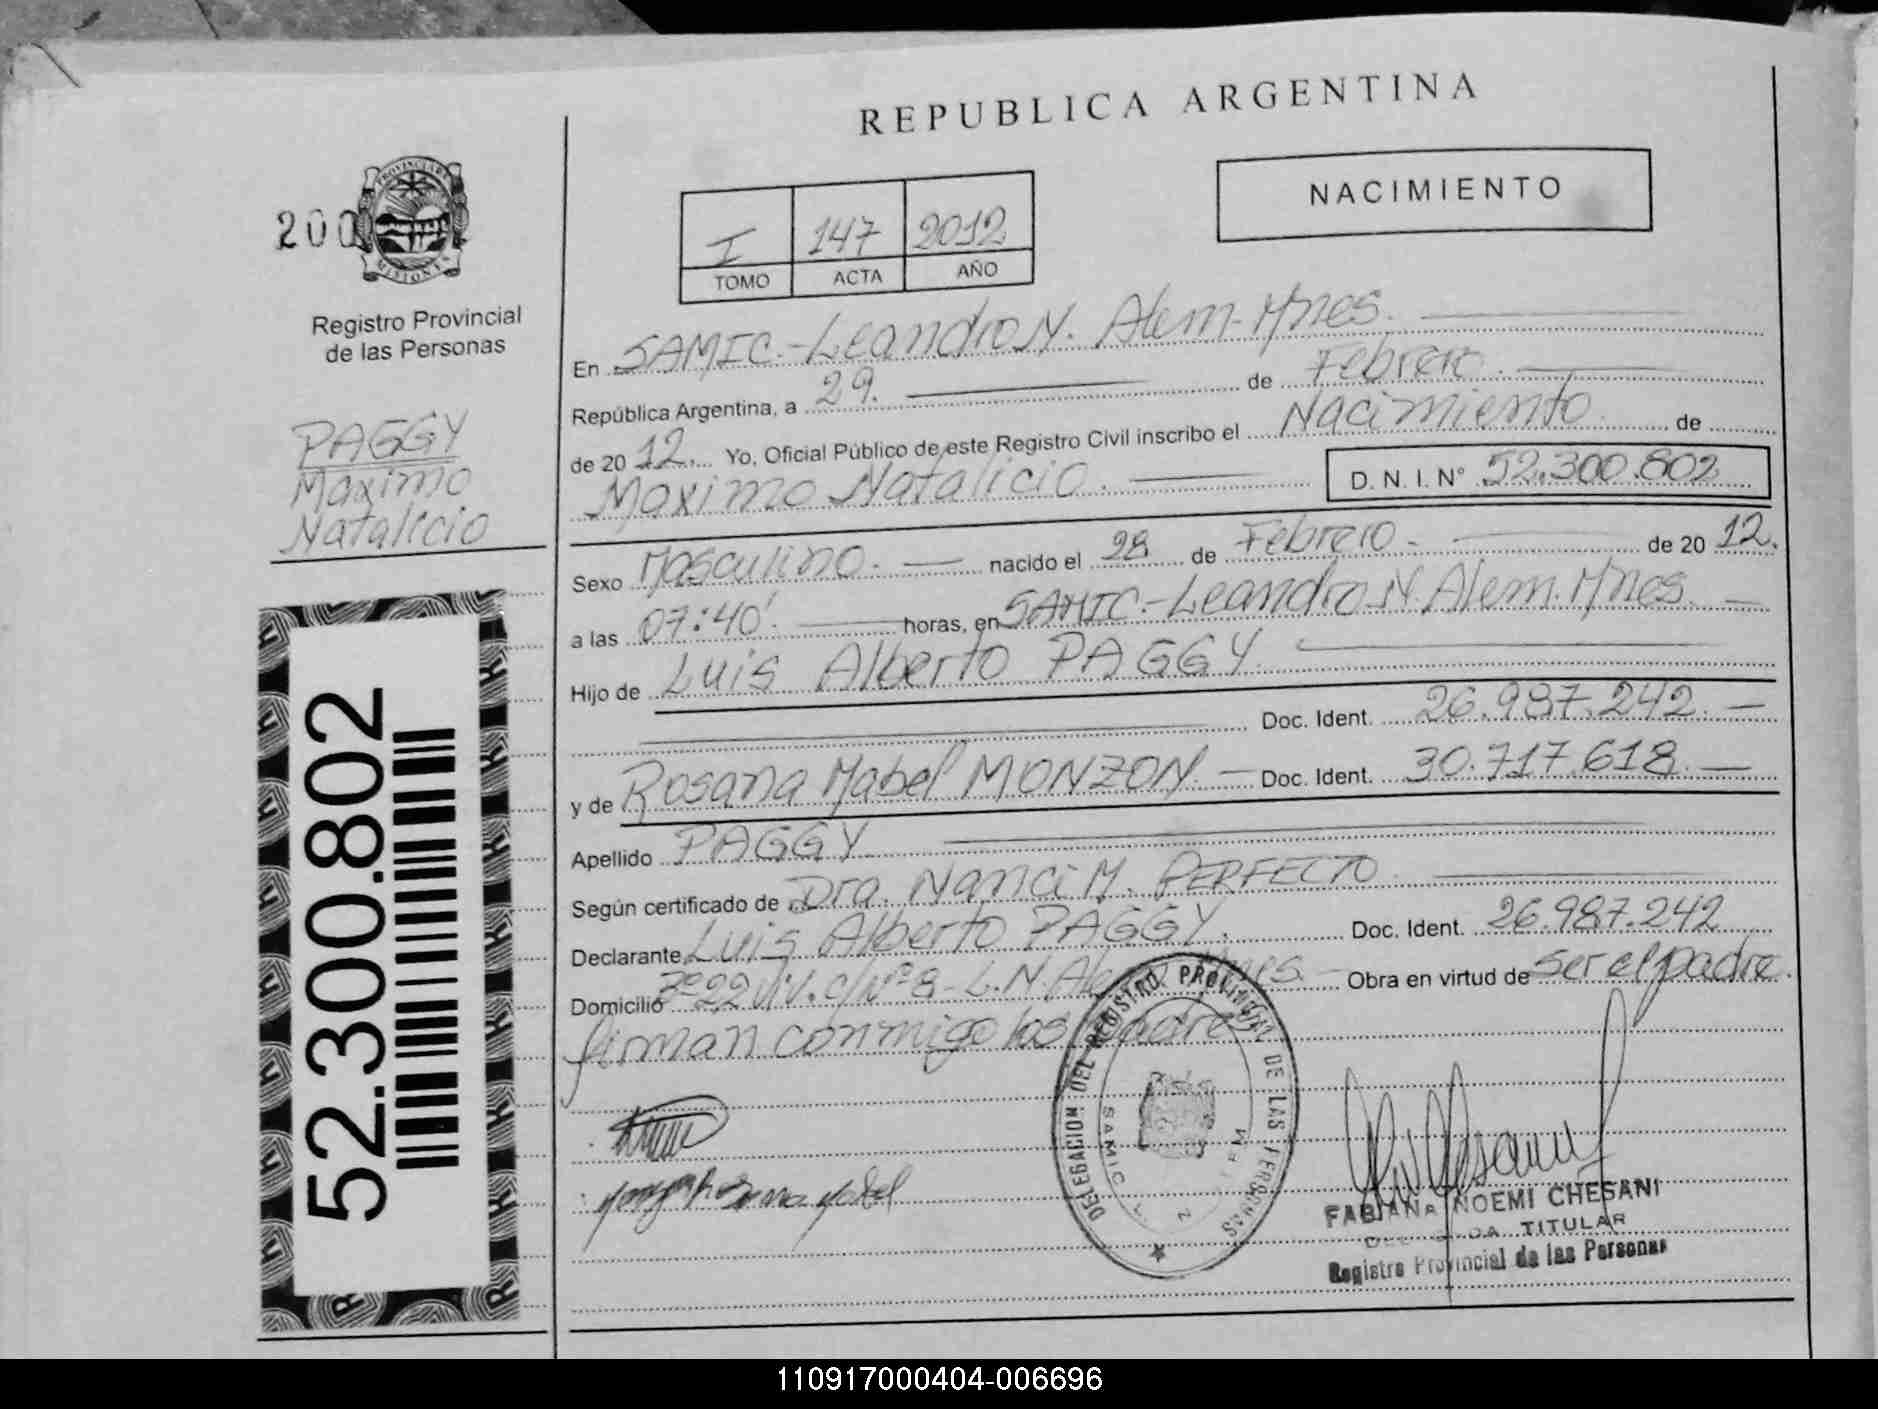 REPUBLICA ARGENTINA
NACIMIENTO
I 147 2012
TOMO ACTA AÑO
200
PROVINCIA DE
MISIONES
Registro Provincial
de las Personas
PAGGY
Maximo
Natalicio
52.300.802
En SAMIC.-Leandro N. Alem-Mnes.
República Argentina, a 29. de Febrero.
de 20 12. Yo, Oficial Público de este Registro Civil inscribo el Nacimiento de
Maximo Natalicio. D. N. I. N° 52.300.802
Sexo Masculino. nacido el 28 de Febrero. de 20 12.
a las 07:40' horas, en SAMIC.-Leandro N. Alem. Mnes.
Hijo de Luis Alberto PAGGY.
Doc. Ident. 26.987.242.
y de Rosana Mabel MONZON. Doc. Ident. 30.717.618.
Apellido PAGGY
Según certificado de Dra. Nanci M. PERFECTO.
Declarante Luis Alberto PAGGY. Doc. Ident. 26.987.242
Domicilio Bº 22 VIV. c/Nº 8-L.N. Mnes. Obra en virtud de ser el padre.
firman conmigo los padres
DELEGACION DEL REGISTRO PROVINCIAL DE LAS PERSONAS
SAMIC L. N. ALEM
FABIANA NOEMI CHESANI
DELEGADA TITULAR
Registro Provincial de las Personas
110917000404-006696